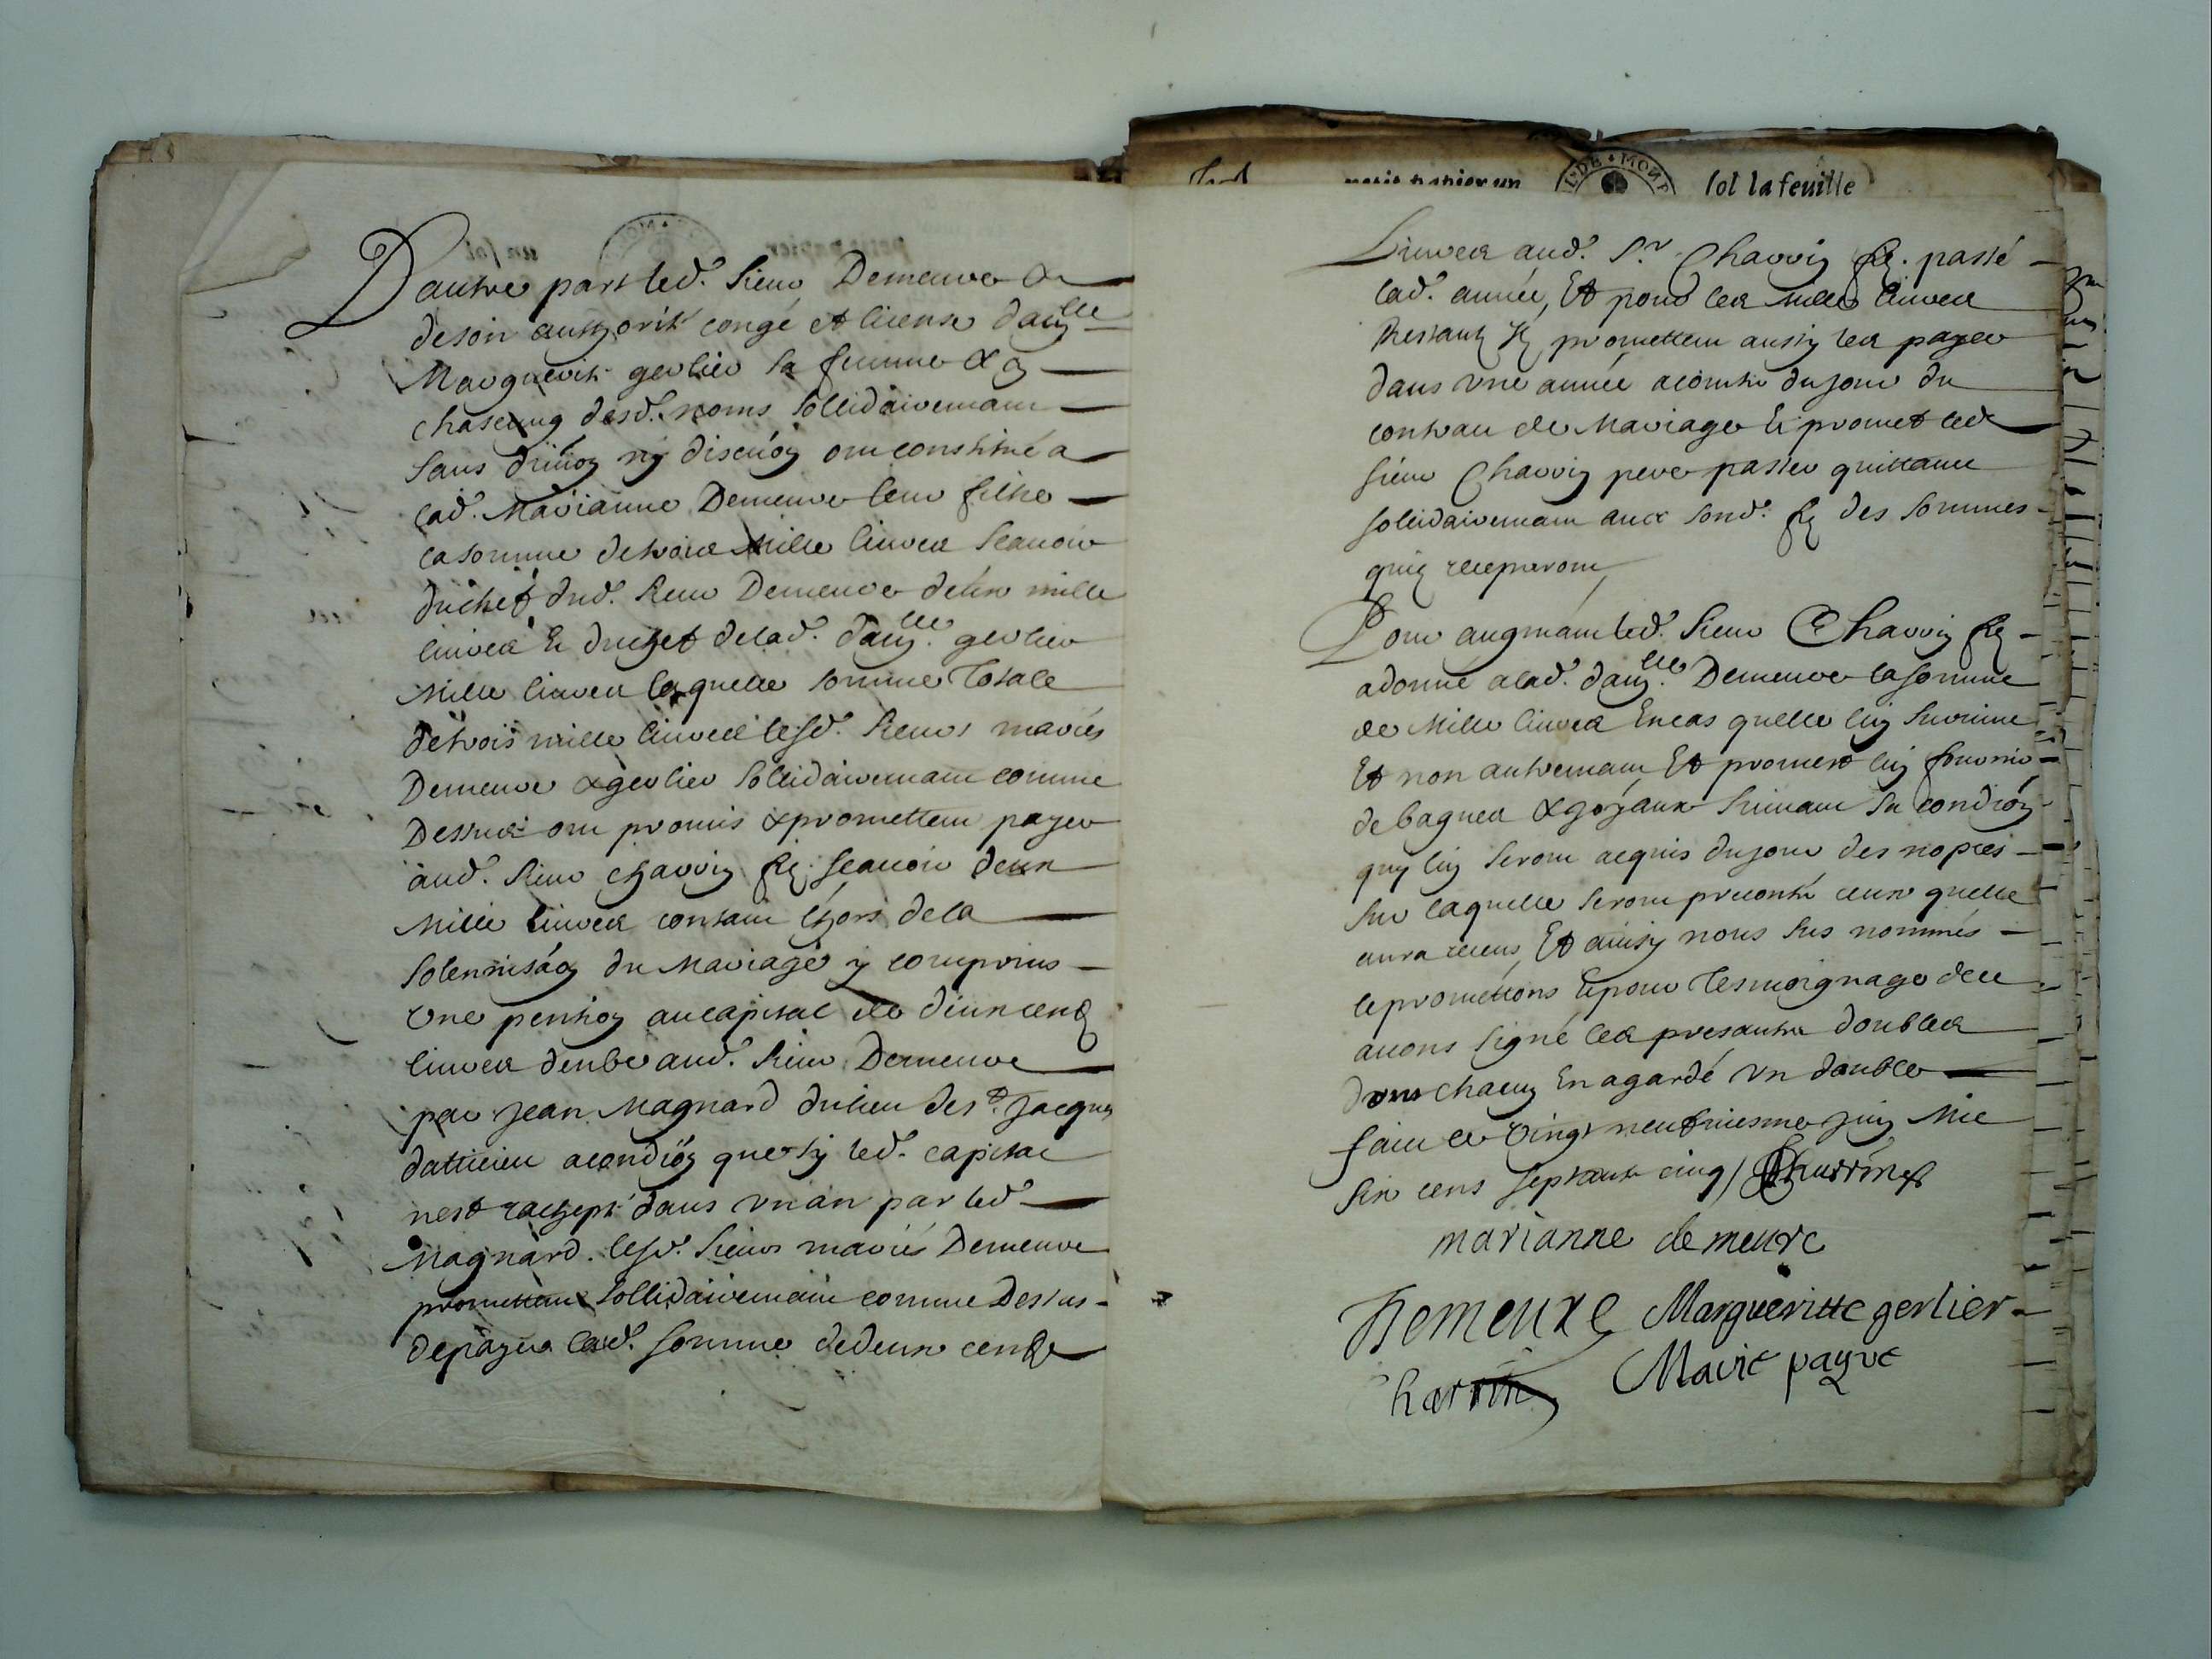 Dautre part led. Sieur Demeure &
de son authorité congé et license dam.lle
Marguerite gerlier sa femme & 
chascung desd. noms sollidairemant
sans diuion ny discuon ont constitué a
lad. Marianne Demeure leur filhe
la somme de trois mille liures scauoir
du chef dud. sieur Demeure deux mille
liures & du chef de lad. dam.lle gerlier
mille liures laquelle somme totale
de trois mille liures lesd. sieurs mariés
Demeure & gerlier sollidairemant comme
dessus ont promis & promettent payer
aud. sieur charrin fils scauoir deux
mille liures contant lhors de la
solennisaon du mariage y comprins
une pention au capital de deux cents
liures deube aud. sieur Demeure
par jean Magnard du lieu de s.t jacques
datticieu a condion que sy led. capital
nest rachepté dans un an par led.
Magnard. lesd. sieurs mariés Demeure
promettent sollidairemant comme dessus
de payer lad. somme de deux cents
petit papier un sol la feuille
Liures aud. S.r Charrin fils. passé
lad. année, Et pour les mille liures
restant Ils promettent aussy les payer
dans une année a conter du jour du
contrau de mariage & promet led.
sieur Charrin pere passer quittance
sollidairemant auec sond. fils des sommes
quils recepuront
Pour augmant led. sieur Charrin fils
a donné a lad. dam.lle Demeure la somme
de mille liures en cas quelle luy suruiue
Et non autremant Et promet luy fournir
de bagues & joyaux suiuant sa condion
quy luy seront acquis du jour des nopces
sur laquelle seront preconté ceux quelle
aura receus, Et ainsy nous sus nommés
le promettons & pour tesmoignage de ce
auons signé les presante doubles
dont chacun en a gardé un double
faict le vingt neufuiesme juin mil
six cens septante cinq / Charrin fils
marianne de meure
Demeure Margueritte gerlier
charrin Marie payre